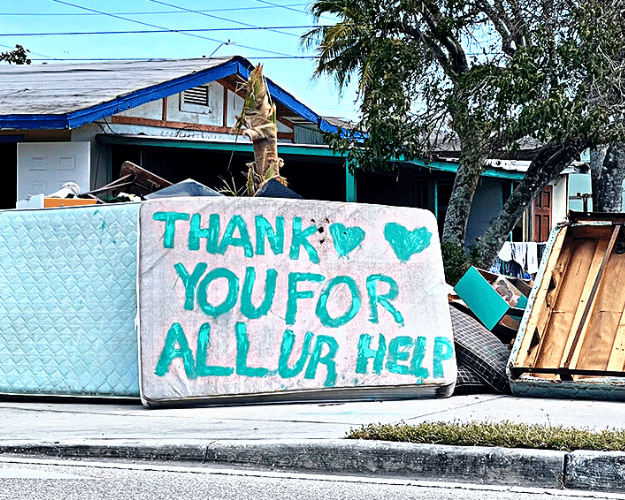 THANK
YOU FOR
ALL UR HELP